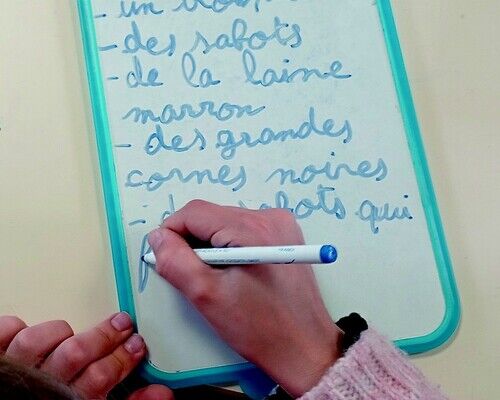 - un
- des sabots
- de la laine
marron
- des grandes
cornes noires
- des sabots qui